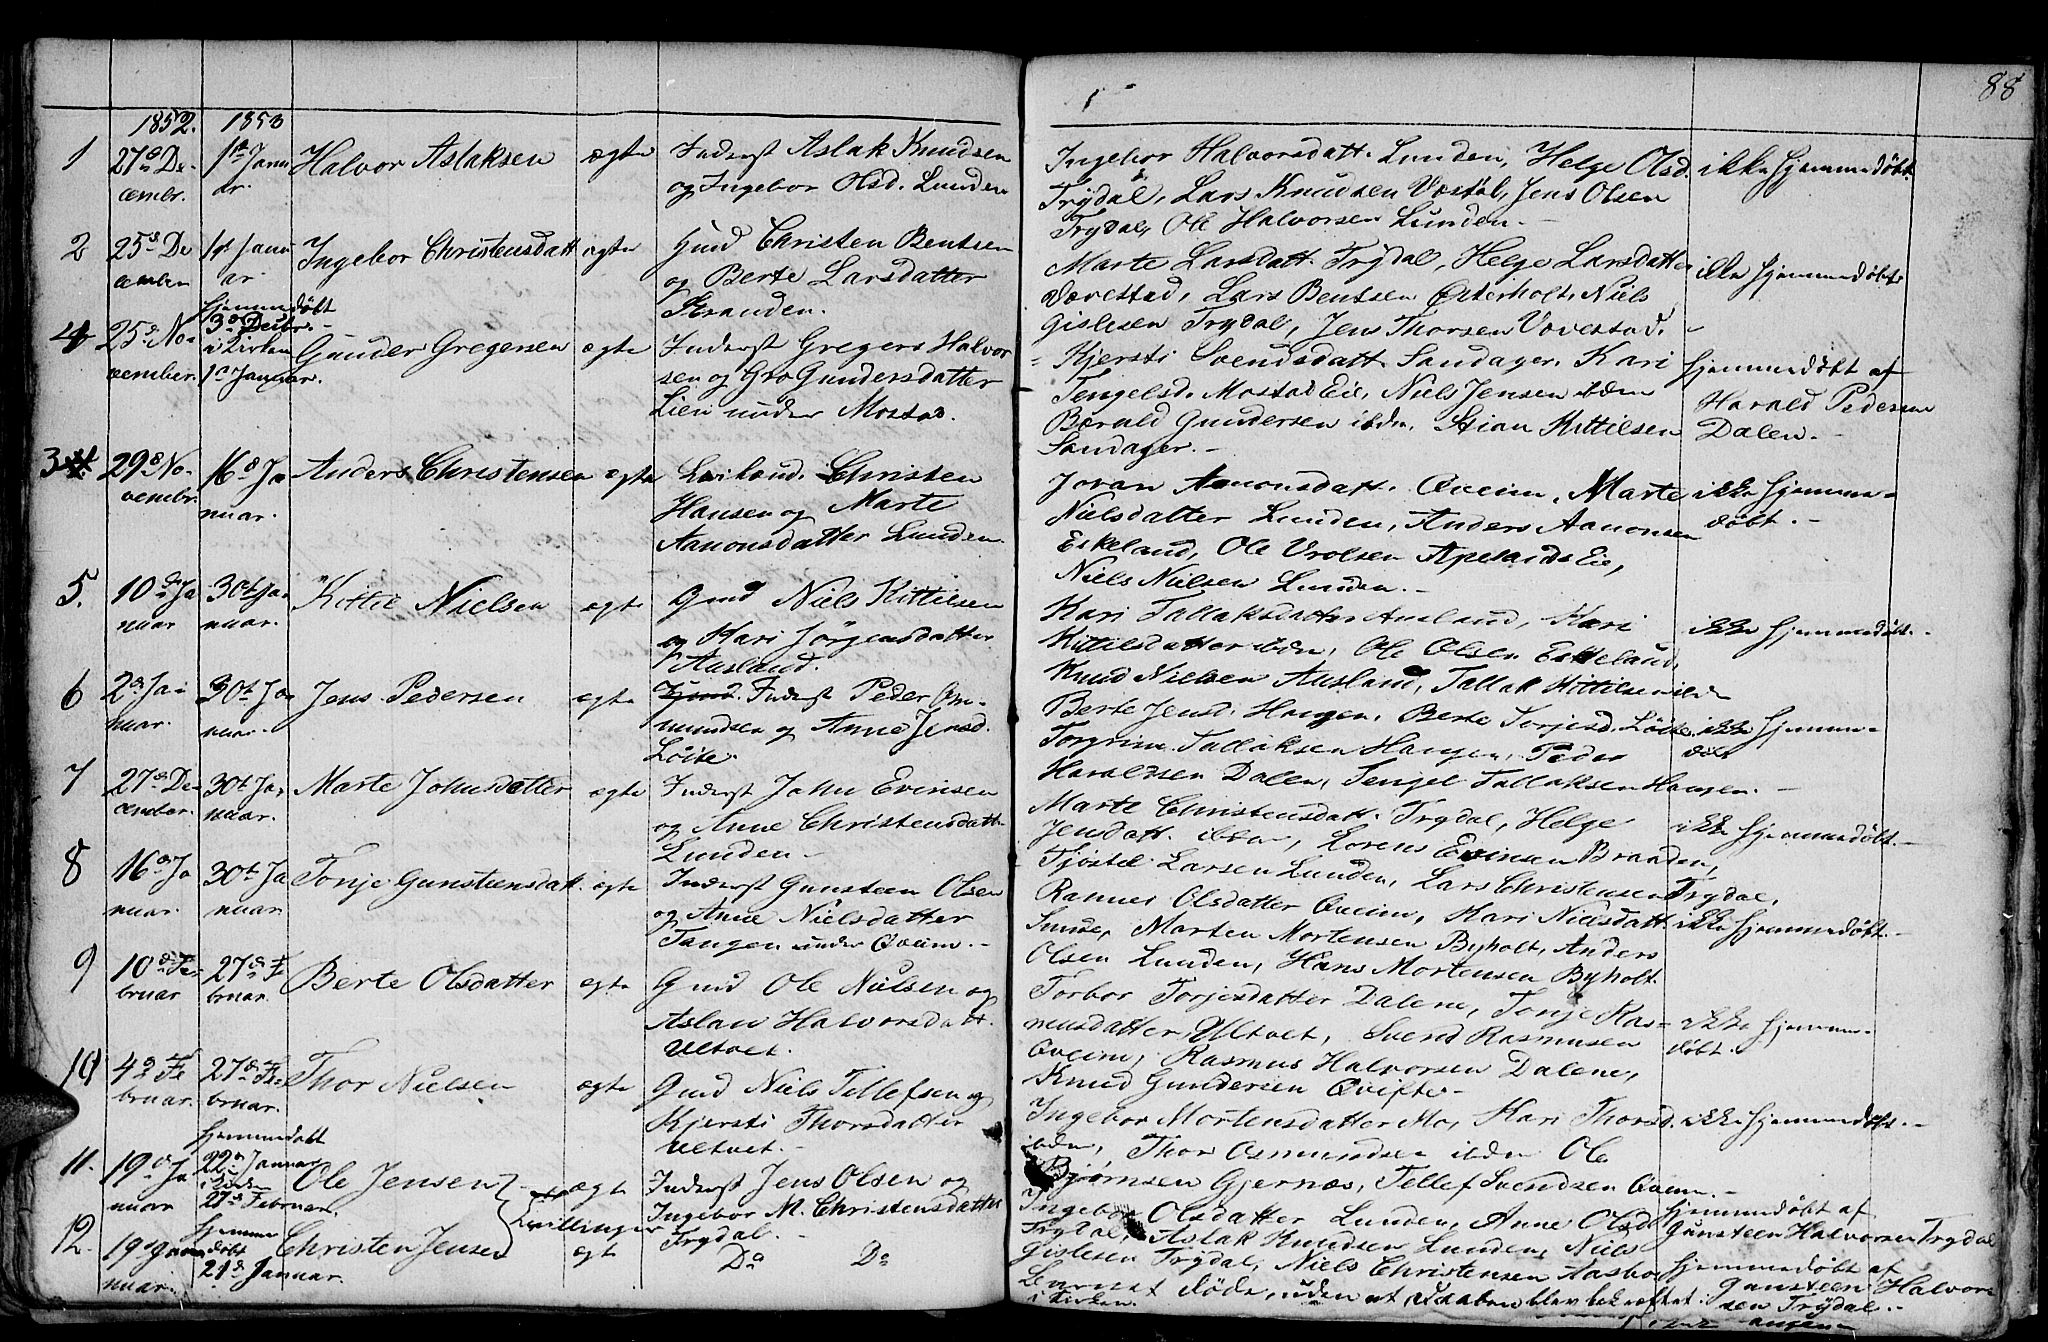 88
1852. 1853
1
27de De-
cember.
1ste Janu
ar.
Halvor Aslaksen
ægte
Inderst Aslak Knudsen
og Ingebor Olsd. Lunden
Ingebor Halvorsdatt. Lunden, Helge Olsd.
Trydal, Lars Knudsen Væstøl, Jens Olsen
Trydal, Ole Halvorsen Lunden. -
ikke hjemmedøbt.
2
25de De
cember
1ste Janu-
ar.
Ingebor Christensdatt
ægte
Gmd Christen Bentsen
og Berte Larsdatter
Stranden.
Marte Larsdatt. Trydal, Helge Larsdatter
Vævestad, Lars Bentsen Østerholt, Niels
Gislesen Trydal, Jens Thorsen Vævestad.
ikke hjemmedøbt
4
25de No-
vember.
hjemmedøbt
3de Decbr. -
i Kirken
1ste Januar.
Gunder Gregersen
ægte
Inderst Gregers Halvor
sen og Gro Gundersdatter
Lien under Mostad.
Kjersti Svendsdatt. Sandager. Kari
Tengelsd. Mostad Eie, Niels Jensen ibdm
Bærald Gundersen ibdm, Stian Kittilsen
Sandager. -
hjemmedøbt af
Harald Pedersen
Dalen. -
3
29de No-
vembr.
16de Ja
nuar.
Anders Christensen
ægte
Christen
Hansen og Marte
Aanonsdatter Lunden.
Joran Aanonsdatt. Qveim, Marte
Nielsdatter Lunden, Anders Aanonsen
Eskeland, Ole Vrolsen Apeland Eie,
Niels Nielsen Lunden. -
ikke hjemme-
døbt. -
5.
10de Ja
nuar
30te Ja-
nuar.
Kittil Nielsen
ægte
Gmd Niels Kittilsen
og Kari Jörgensdatter
Ausland.
Kari Tallaksdatter Ausland, Kari
Kittilsdatter ibdm, Ole Olsen Eskeland,
Knud Nielsen Ausland, Tallak Kittilsen ibdm
ikke hjemmedøbt. -
6
2de Ja-
nuar.
30te Ja-
nuar.
Jens Pedersen
ægte
Gmd. Inderst Peder Om-
mundsen og Anne Jensd.
Löite.
Berte Jensd. Haugen, Berte Torjesd. Löite,
Torgrim Tallaksen Haugen, Peder
Haraldsen Dalen, Tengel Tallaksen Haugen. -
ikke hjemme-
døbt
7
27de De-
cember.
30te Ja-
nuar.
Marte Johnsdatter
ægte
Inderst John Evinsen
og Anne Christensdatt.
Lunden -
Marte Christensdatt. Trydal, Helge
Jensdatt. ibdm, Lorens Evinsen Braaden,
Tjöstel Larsen Lunden, Lars Christensen Trydal.
ikke hjemmedøbt. -
8
16de Ja
nuar.
30te Ja
nuar.
Tonje Gunsteensdatt.
ægte
Inderst Gunsteen Olsen
og Anne Nielsdatter
Tangen under Qveim. -
Ranner Olsdatter Qveim, Kari Nielsdatt.
Sunde, Morten Mortensen Byholt, Anders
Olsen Lunden, Hans Mortensen Byholt.
ikke hjemmedøbt. -
9
10de Fe-
bruar
27de Fe
bruar.
Berte Olsdatter
ægte
Gmd Ole Nielsen og
Aslau Halvorsdatt.
Ultvet.
Torbor Torjesdatter Dalene, Tonje Ras-
musdatter Ultvet, Svend Rasmusen
Qveim, Rasmus Halvorsen Dalene,
Knud Gundersen Qvifte. -
ikke hjemme-
døbt.
10
4de Fe
bruar.
27de Fe-
bruar.
Thor Nielsen
ægte
Gmd Niels Tellefsen og
Kjersti Thorsdatter
Ultvet.
Ingebor Mortensdatter Mo, Kari Thorsd.
ibdm, Thor Osmundsen ibdm Ole
Bjørnsen Gjernæs, Tellef Svendsen Qveim. -
ikke hjemmedøbt. -
11.
19de Ja
nuar
hjemmedøbt
22de Januar
i Kirken
27de Februar.
Ole Jensen
Tvillinger
ægte
Inderst Jens Olsen og
Ingebor M. Christensdatter
Trydal. -
Ingebor Olsdatter Lunden, Anne Olsd.
Trydal, Aslak Knudsen Lunden, Niels
Gislesen Trydal, Niels Christensen Aasbo
hjemmedøbt af
Gunsteen Halvorsen Trydal
12.
19de Janu
nuar.
hjemme
døbt
21de Januar.
Christen Jensen
ægt
Do Do
Barnet døde, uden at Daaben blev bekræftet
i Kirken.
hjemmedøbt af
Gunsteen Halvor
sen Trydal. -